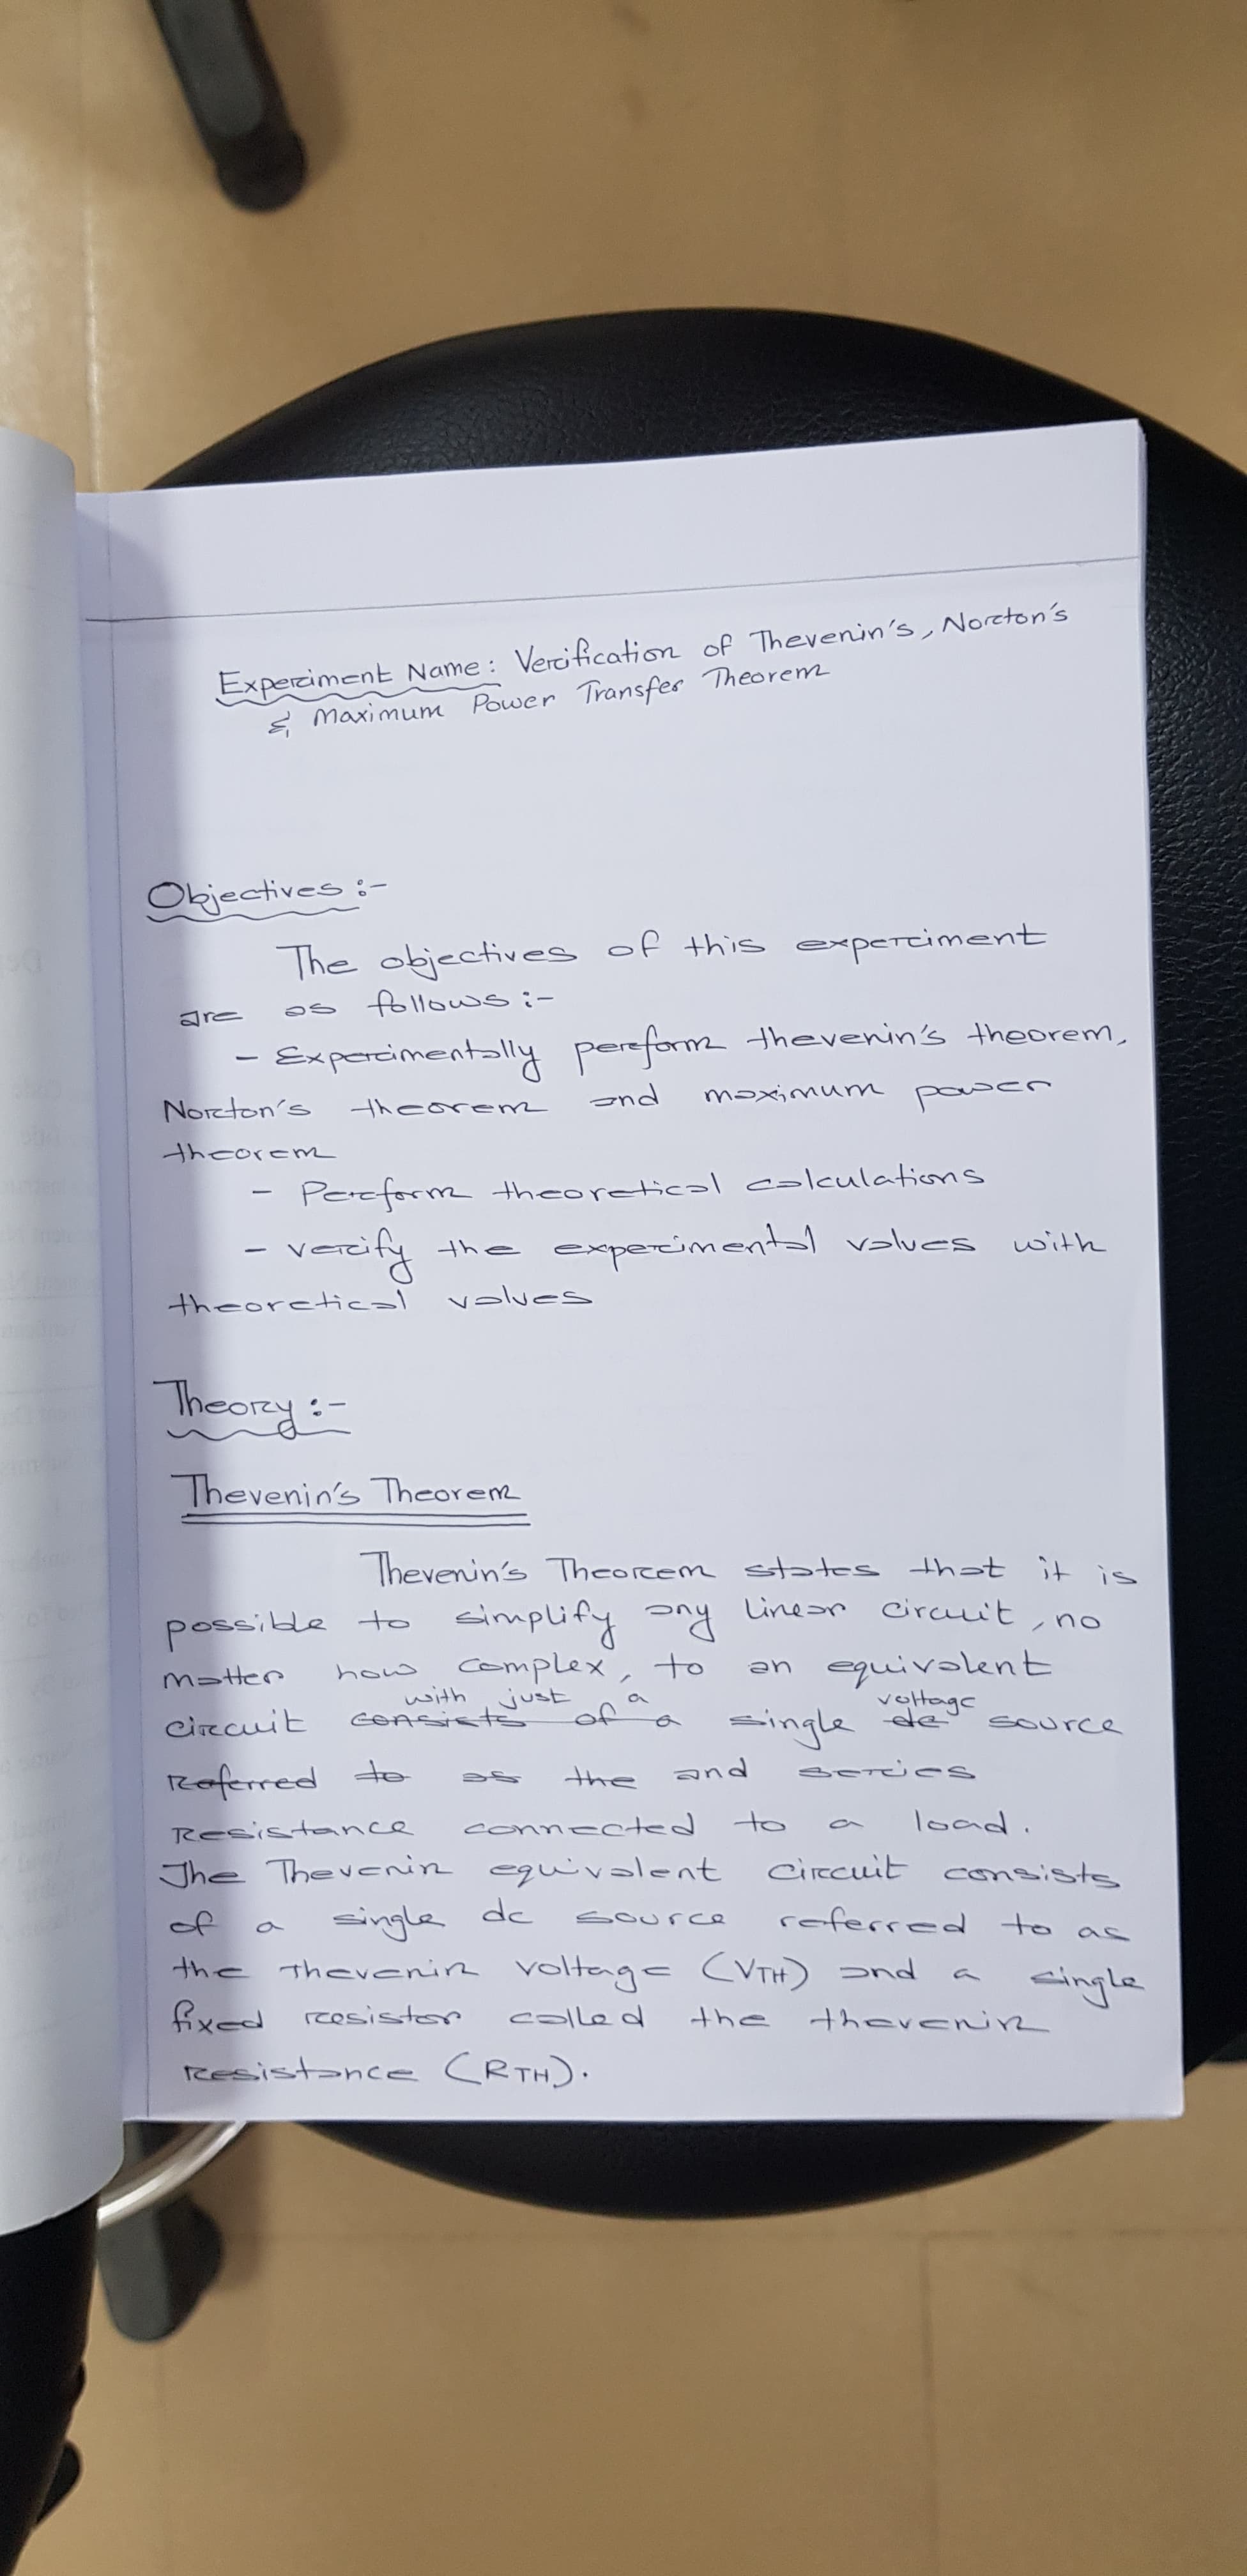 Experiment Name: Verification of Thevenin's, Norton's
& Maximum Power Transfer Theorem
Objectives :-
The objectives of this experiment
are as follows :-
- Experimentally perform thevenin's theorem,
Norton's theorem and maximum power
theorem
- Perform theoretical calculations
- verify the experimental values with
theoretical values
Theory :-
Thevenin's Theorem
Thevenin's Theorem states that it is
possible to simplify any linear circuit, no
matter how complex, to an equivalent
with just a voltage
circuit consists of a single dc source
Referred to as the and series
Resistance connected to a load.
The Thevenin equivalent circuit consists
of a single dc source referred to as
the Thevenin voltage (VTH) and a single
fixed resistor called the thevenin
Resistance (RTH).